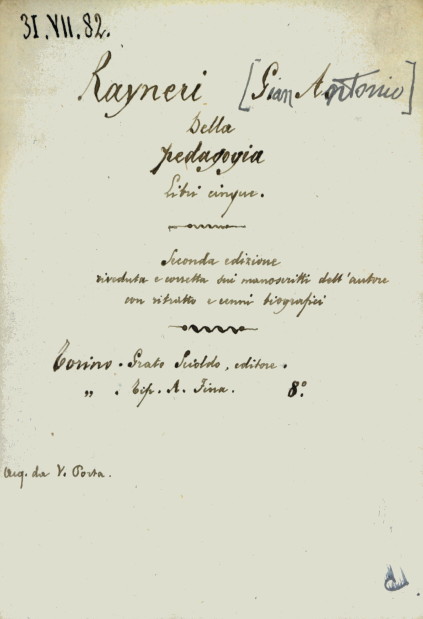 31.VII.82.
Rayneri [Gian Antonio]
Della
pedagogia
Libri cinque.
Seconda edizione
riveduta e corretta sui manoscritti dell'autore
con ritratto e cenni biografici
Torino. Grato Scioldo, editore.
" . Tip. A. Fina. 8º.
Acq. da V. Porta.